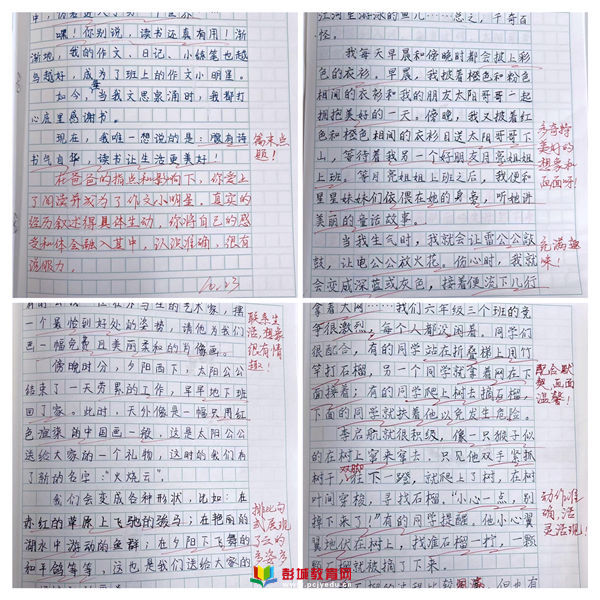 嘿！你别说，读书还真有用！渐
渐地，我的作文、日记、小练笔也越
写越好，成为了班上的作文小明星。
如今，每当我文思泉涌时，我都打
心底里感谢书。
现在，我唯一想说的是：腹有诗
书气自华，读书让生活更美好！
篇末点
题！
在爸爸的指点和影响下，你爱上
了阅读并成为了作文小明星，真实的
经历叙述得具体生动，你将自己的感
受和体会融入其中，认识准确，很有
说服力。
江河里游泳的鱼儿……总之，千奇百
怪。
我每天早晨和傍晚时都会披上彩
色的衣衫。早晨，我披着橙色和粉色
相间的衣衫和我的朋友太阳哥哥一起
拥抱美好的一天。傍晚，我又披着红
色和橙色相间的衣衫目送太阳哥哥下
山，等待着我另一个好朋友月亮姐姐
上班。等月亮姐姐上班之后，我便和
星星妹妹们依偎在她的身旁，听她讲
美丽的童话故事。
当我生气时，我就会让雷公公敲
鼓，让电公公放火花。伤心时，我就
会变成深蓝或灰色，接着便淡下几行
多奇特
美好的
想象和
画面呀！
充满趣
味！
一个最恰到好处的姿势，请他为我们
画一幅免费且美丽柔和的肖像画。
傍晚时分，夕阳西下，太阳公公
结束了一天劳累的工作，早早地下班
回了家。此时，天外像是一幅只用红
色渲染的中国画一般，这是太阳公公
送给大家的一个礼物，这时的我们有
了新的名字："火烧云"。
我们会变成各种形状，比如：在
赤红的草原上飞驰的骏马；在艳丽的
湖水中游动的鱼群；在夕阳下飞舞的
和平鸽等等，这也是我们送给大家的
联系生
活，想象
很有情
趣！
排比句
式展现
了云的
多姿多
拿着大网……我们六年级三个班的竞
争很激烈，每个人都没闲着。同学们
很配合，有的同学站在折叠梯上用竹
竿打石榴，另一个同学就拿着网在下
面接着；有的同学爬上树去摘石榴，
下面的同学就扶着他以免发生危险。
李启航就很积极，像一只猴子似
的在树上窜来窜去。只见他双手紧抓
树干，双脚往下一蹬，就爬上了树，在树
叶间穿梭，寻找石榴。"小心一点，别
掉下来了！"有的同学提醒。他小心翼
翼地伏在树上，找准石榴一拧，一颗
石榴就被摘了下来。
配合默
契，画面
温馨！
动作准
确，活
灵活现！
彭城教育网
www.pcjyedu.cn